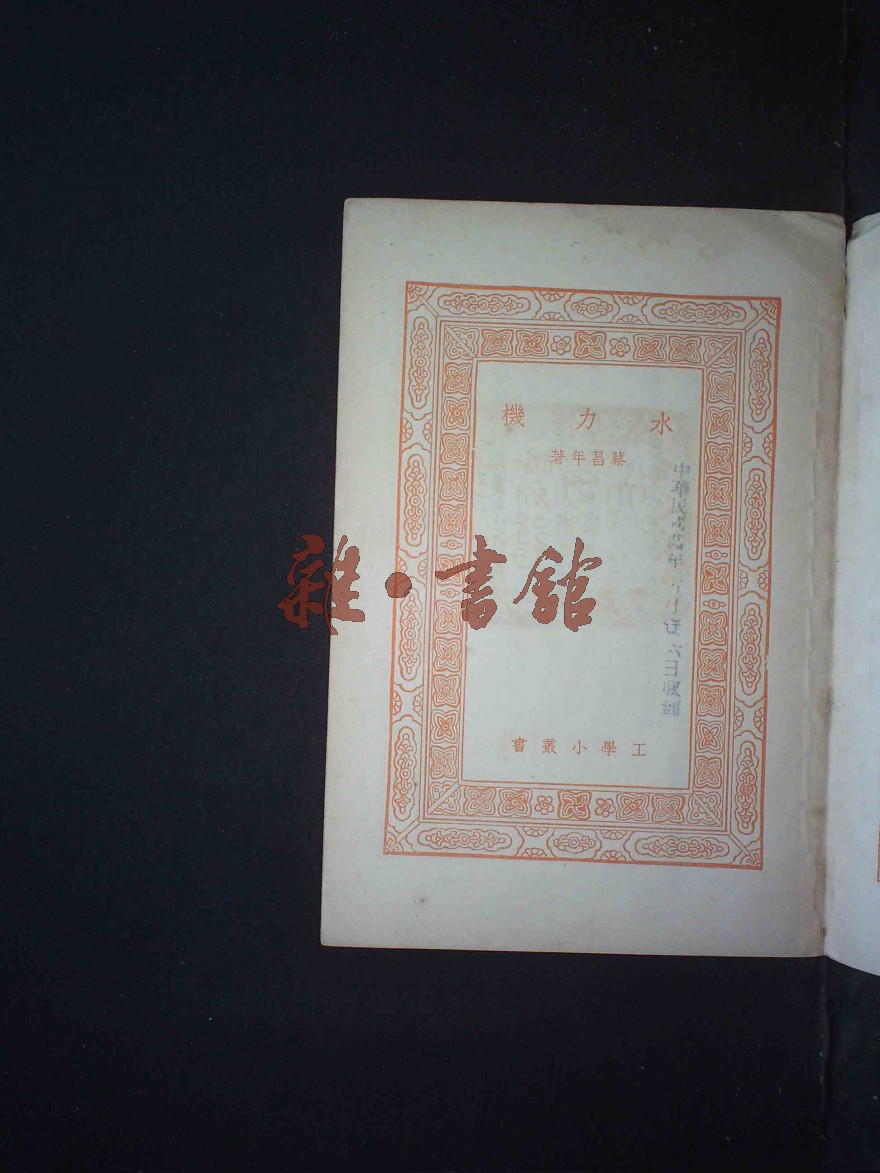 水力機
蔡昌年著
中華民國年六日收到
雜·書館
工學小叢書